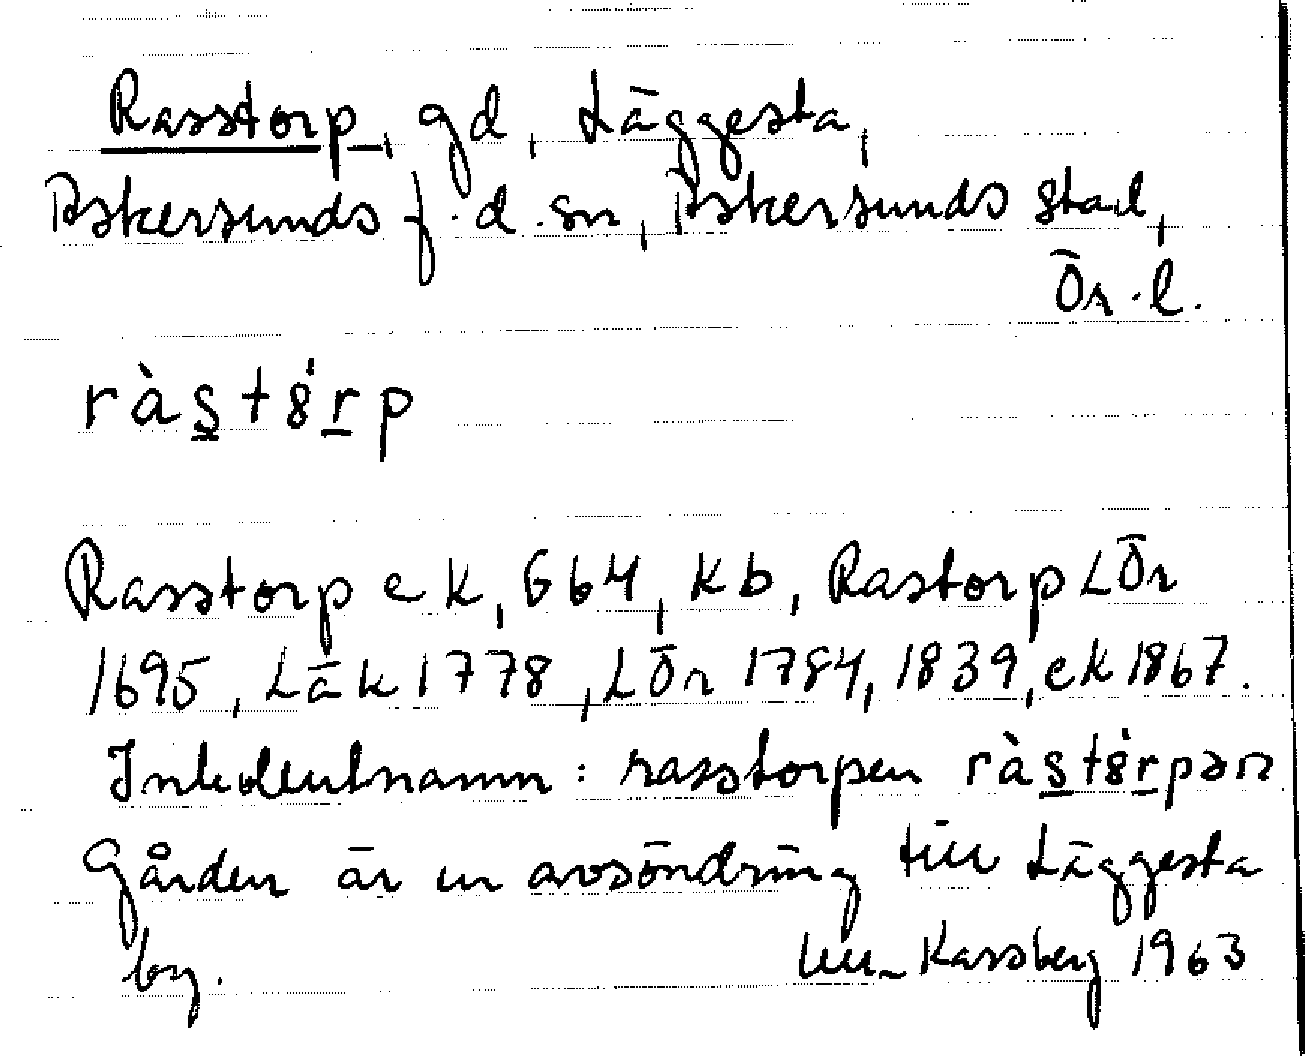 Rasstorp, gd, Läggesta,
Askersunds f.d. sn, Askersunds stad,
Ör. l.
ràst8́rp
Rasstorp ek, 664, kb, Rastorp LÖr
1695, Läk 1778, LÖr 1784, 1839, ek 1867.
Inkolentnamn: rasstorpen ràst8́rpən
Gården är en avsöndring till Läggesta
by. Kassberg 1963